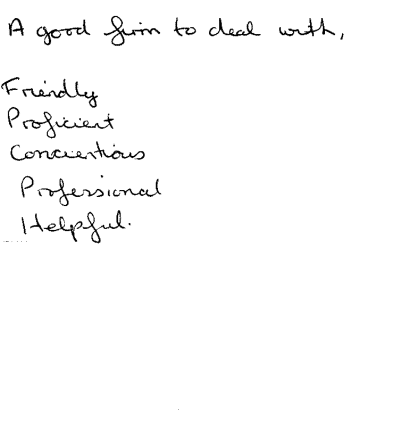 A good firm to deal with,
Friendly
Proficient
Concientious
Professional
Helpful.